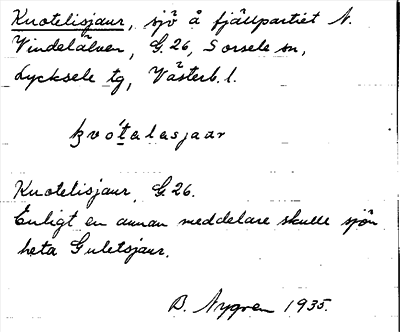 Kuotelisjaur, sjö å fjällpartiet N.
Vindelälven, G. 26, Sorsele sn,
Lycksele tg, Västerb. l.
kvo͕talasjaar
Kuotelisjaur, G 26.
Enligt en annan meddelare skulle sjön
heta Guletsjaur.
B. Nygren 1935.